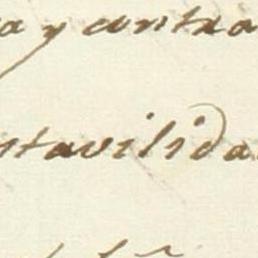 a y contra
ntavilida